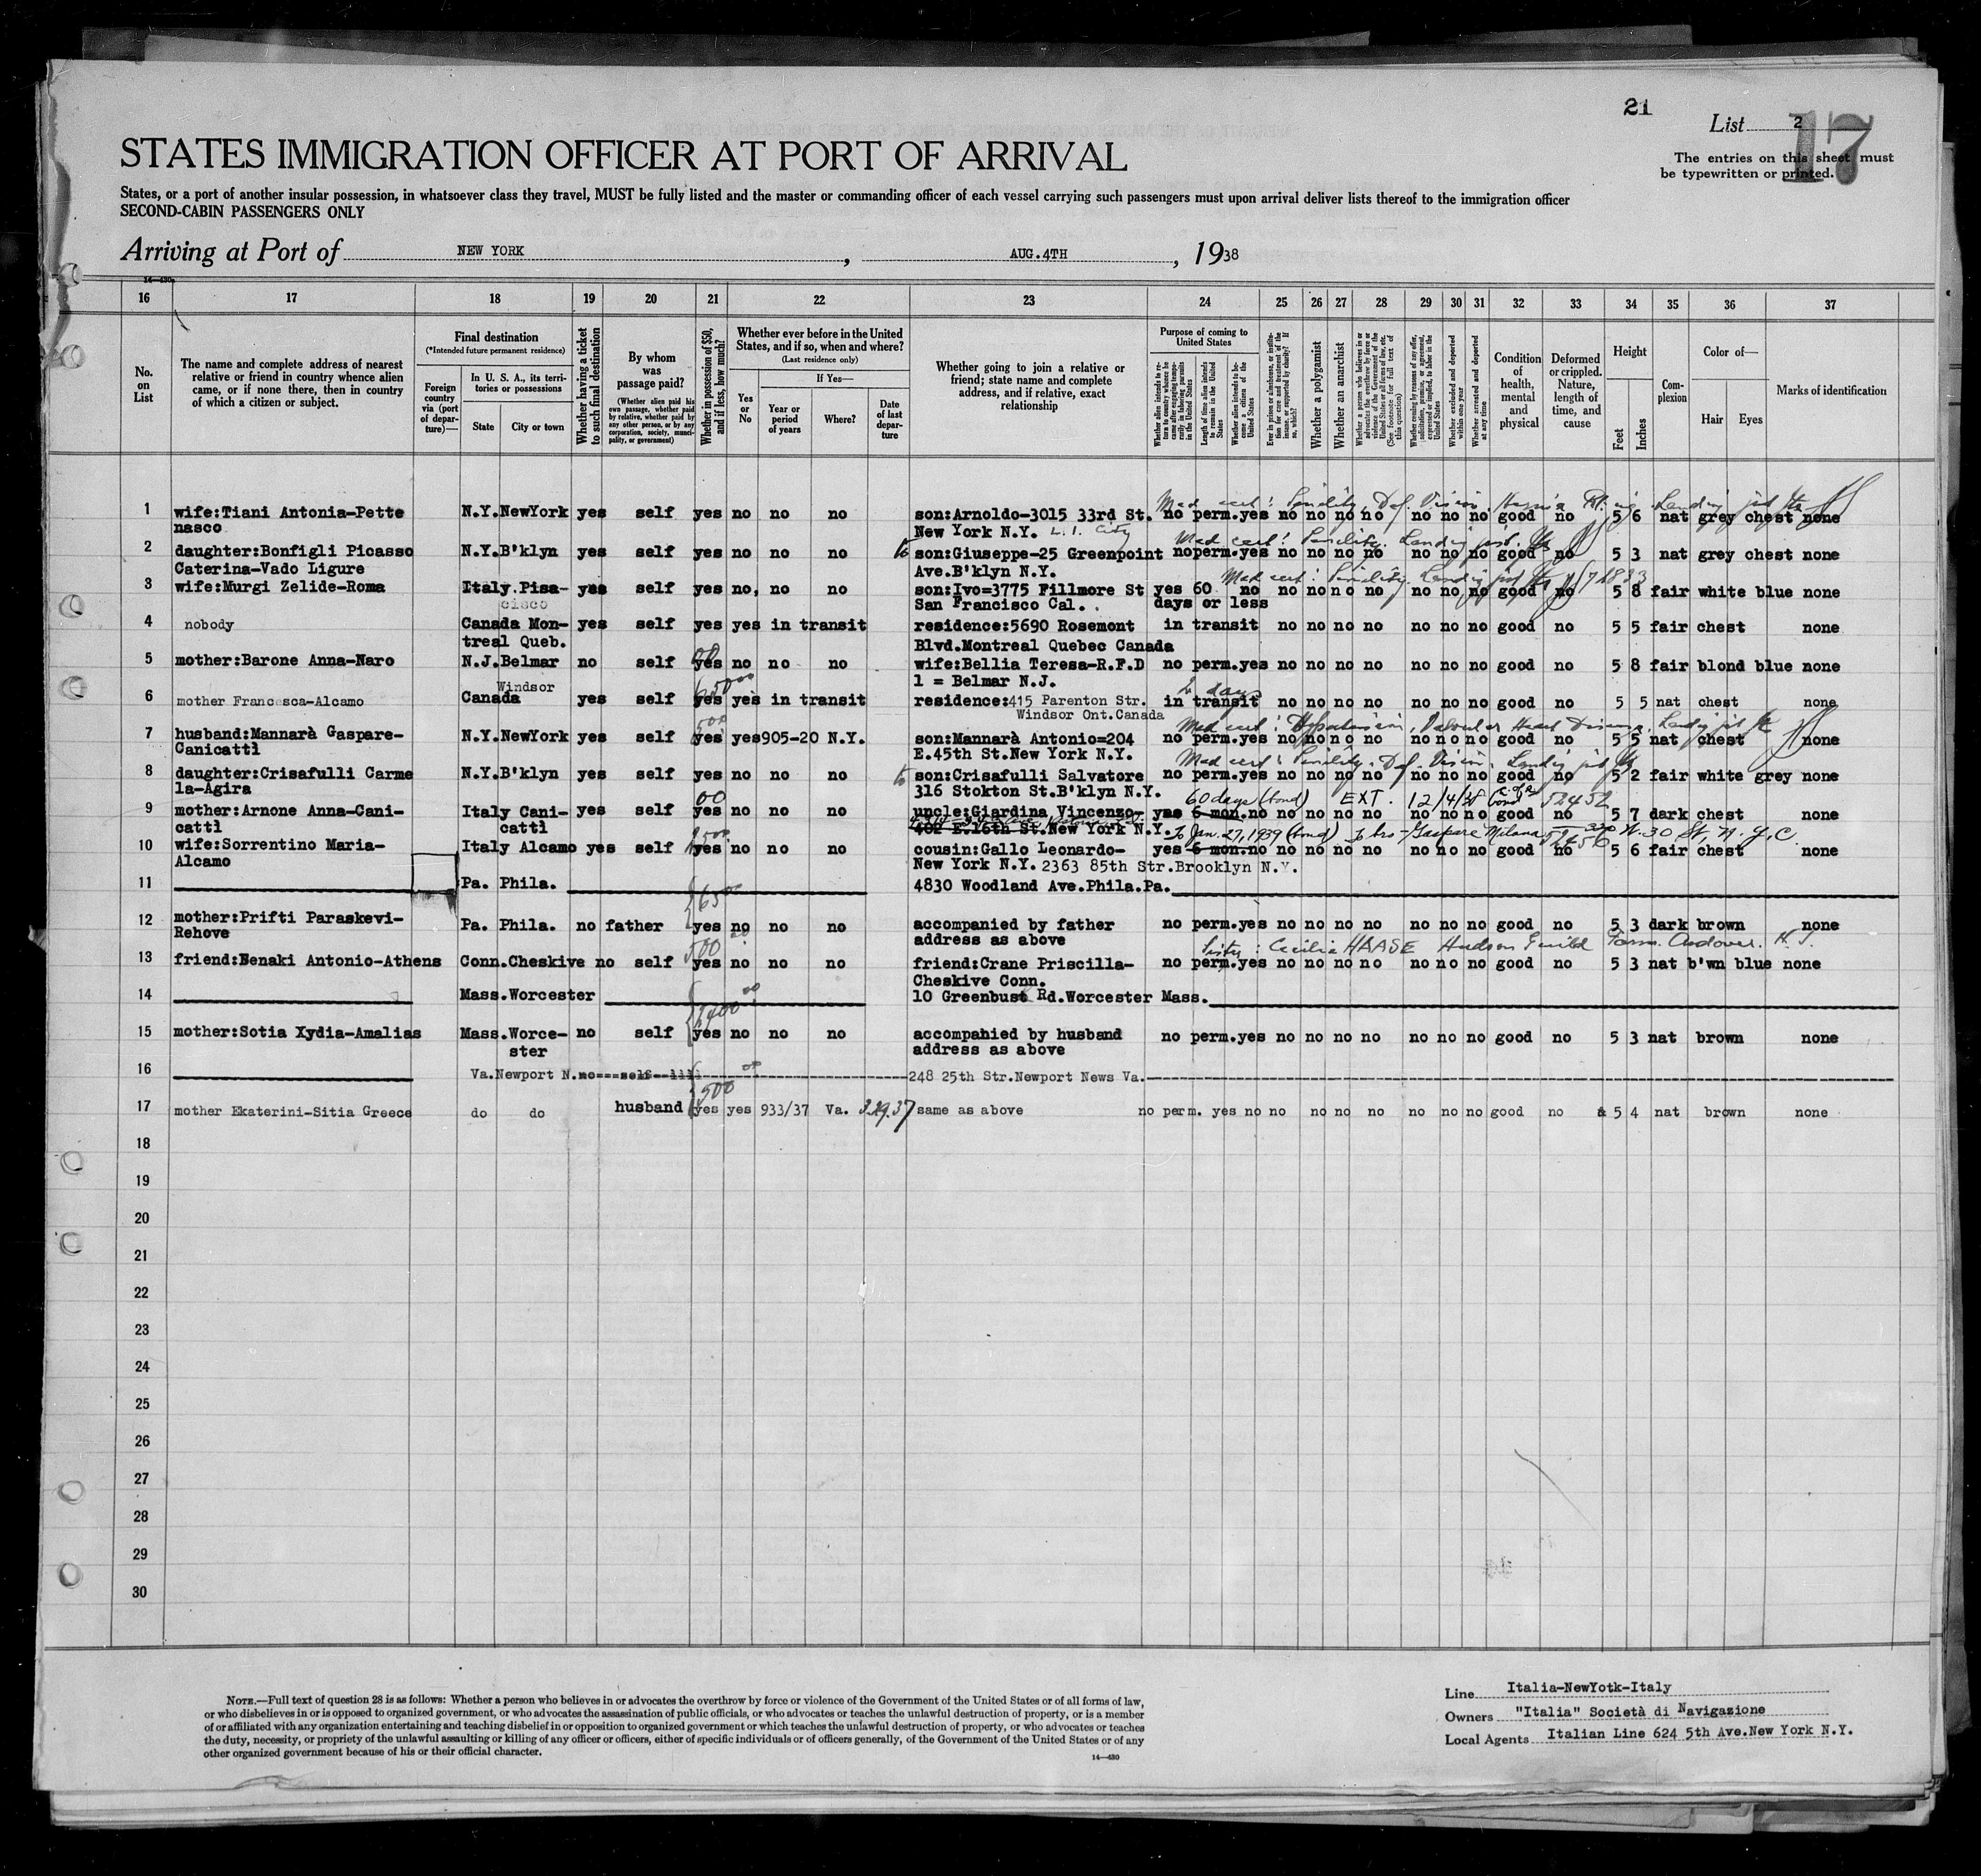 21
List 2
17
STATES IMMIGRATION OFFICER AT PORT OF ARRIVAL
The entries on this sheet must
be typewritten or printed.
States, or a port of another insular possession, in whatsoever class they travel, MUST be fully listed and the master or commanding officer of each vessel carrying such passengers must upon arrival deliver lists thereof to the immigration officer
SECOND-CABIN PASSENGERS ONLY
Arriving at Port of NEW YORK, AUG.4TH, 1938
14-430
16 17 18 19 20 21 22 23 24 25 26 27 28 29 30 31 32 33 34 35 36 37
No. on List
The name and complete address of nearest relative or friend in country whence alien came, or if none there, then in country of which a citizen or subject.
Final destination
(*Intended future permanent residence)
Foreign country via (port of departure)—
In U. S. A., its territories or possessions
State
City or town
Whether having a ticket to such final destination
By whom was passage paid?
(Whether alien paid his own passage, whether paid by relative, whether paid by any other person, or by any corporation, society, municipality, or government)
Whether in possession of $50, and if less, how much?
Whether ever before in the United States, and if so, when and where?
(Last residence only)
Yes or No
If Yes—
Year or period of years
Where?
Date of last departure
Whether going to join a relative or friend; state name and complete address, and if relative, exact relationship
Purpose of coming to United States
Length of time alien intends to remain in the United States
Whether alien intends to become a citizen of the United States
Whether a polygamist
Whether an anarchist
(See footnote for full text of this question)
Whether excluded and deported within one year
Whether arrested and deported at any time
Condition of health, mental and physical
Deformed or crippled. Nature, length of time, and cause
Height
Feet
Inches
Complexion
Color of—
Hair
Eyes
Marks of identification
Med cert: Senility. Def. Vision. Hernia Rt.
1 wife:Tiani Antonia-Pette N.Y.NewYork yes self yes no no no son:Arnoldo-3015 33rd St. no perm.yes no no no no no no no good no 5 6 nat grey chest none
nasco New York N.Y. L.I. City
Med cert: Senility.
2 daughter:Bonfigli Picasso N.Y.B'klyn yes self yes no no no son:Giuseppe-25 Greenpoint no perm.yes no no no no no no no good no 5 3 nat grey chest none
Caterina-Vado Ligure Ave.B'klyn N.Y.
Med cert: Senility.
3 wife:Murgi Zelide-Roma Italy.Pisa- yes self yes no, no no son:Ivo=3775 Fillmore St yes 60 no no no no no no no no good no 5 8 fair white blue none
cisco San Francisco Cal. days or less
4 nobody Canada Mon- yes self yes yes in transit residence:5690 Rosemont in transit no no no no no no no good no 5 5 fair chest none
treal Queb. Blvd.Montreal Quebec Canada
5 mother:Barone Anna-Naro N.J.Belmar no self yes no no no wife:Bellia Teresa-R.F.D no perm.yes no no no no no no no good no 5 8 fair blond blue none
1 = Belmar N.J.
Windsor
2 days
6 mother Francesca-Alcamo Canada yes self yes yes in transit residence:415 Parenton Str. in transit no no no no no no no good no 5 5 nat chest none
Windsor Ont.Canada
7 husband:Mannarà Gaspare- N.Y.NewYork yes self yes yes905-20 N.Y. son:Mannarà Antonio=204 no perm.yes no no no no no no no good no 5 5 nat chest none
Canicattì E.45th St.New York N.Y.
Med cert: Senility. Def. Vision.
8 daughter:Crisafulli Carme N.Y.B'klyn yes self yes no no no son:Crisafulli Salvatore no perm.yes no no no no no no no good no 5 2 fair white grey none
la-Agira 316 Stokton St.B'klyn N.Y.
60 days (bond) EXT. 12/4/38 52452
9 mother:Arnone Anna-Cani- Italy Cani- yes self yes no no no uncle:Giardina Vincenzo- yes 6 mon.no no no no no no no no good no 5 7 dark chest none
cattì cattì 402 E.16th St.New York N.Y.
To Jan. 27, 1939 (bond) Gaspare Milana W. 30 St, N.Y.C.
10 wife:Sorrentino Maria- Italy Alcamo yes self yes no no no cousin:Gallo Leonardo- yes 6 mon.no no no no no no no no good no 5 6 fair chest none
Alcamo New York N.Y. 2363 85th Str.Brooklyn N.Y.
11 Pa. Phila. 4830 Woodland Ave.Phila.Pa.
12 mother:Prifti Paraskevi- Pa. Phila. no father yes no no no accompanied by father no perm.yes no no no no no no no good no 5 3 dark brown none
Rehove address as above
Sister: Cecilia HAASE Hudson Guild Farm. Andover. N.J.
13 friend:Benaki Antonio-Athens Conn.Cheskive no self yes no no no friend:Crane Priscilla- no perm.yes no no no no no no no good no 5 3 nat b'wn blue none
Cheskive Conn.
14 Mass.Worcester 10 Greenbush Rd.Worcester Mass.
15 mother:Sotia Xydia-Amalias Mass.Worce- no self yes no no no accompanied by husband no perm.yes no no no no no no no good no 5 3 nat brown none
ster address as above
16 Va.Newport N.no---self 248 25th Str.Newport News Va.
17 mother Ekaterini-Sitia Greece do do husband yes yes 933/37 Va. 3.29.37 same as above no perm. yes no no no no no no no no good no 5 4 nat brown none
18
19
20
21
22
23
24
25
26
27
28
29
30
NOTE.—Full text of question 28 is as follows: Whether a person who believes in or advocates the overthrow by force or violence of the Government of the United States or of all forms of law,
or who disbelieves in or is opposed to organized government, or who advocates the assassination of public officials, or who advocates or teaches the unlawful destruction of property, or is a member
of or affiliated with any organization entertaining and teaching disbelief in or opposition to organized government or which teaches the unlawful destruction of property, or who advocates or teaches
the duty, necessity, or propriety of the unlawful assaulting or killing of any officer or officers, either of specific individuals or of officers generally, of the Government of the United States or of any
other organized government because of his or their official character.
14-430
Line Italia-NewYotk-Italy
Owners "Italia" Società di Navigazione
Local Agents Italian Line 624 5th Ave.New York N.Y.